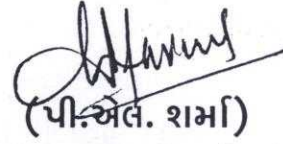 (પી.એલ. શર્મા)